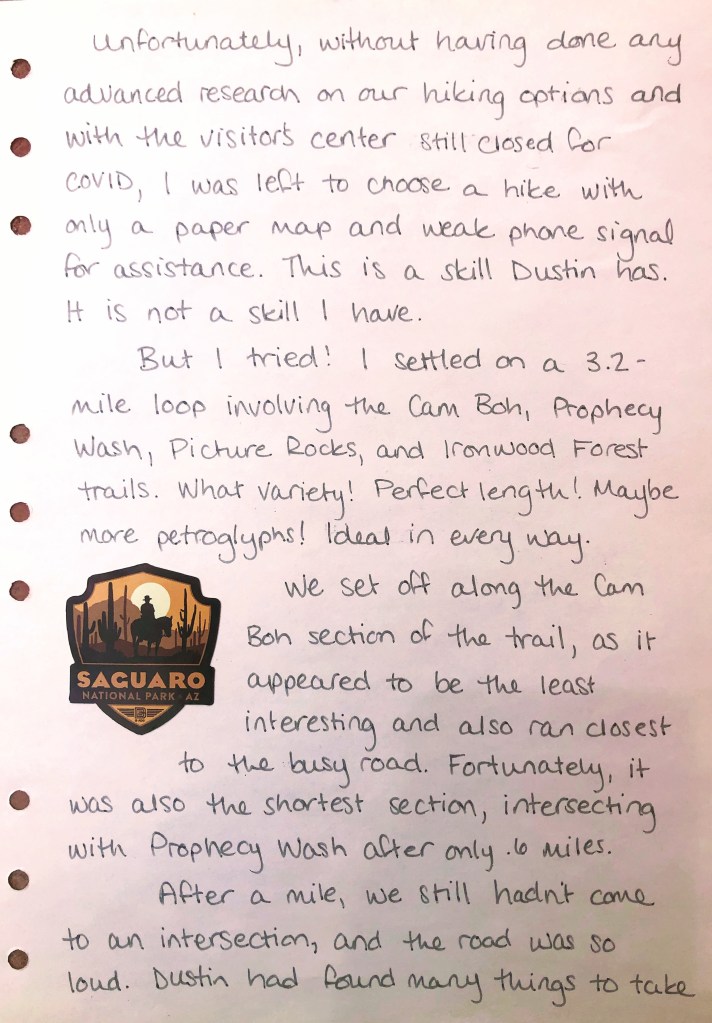 Unfortunately, without having done any
advanced research on our hiking options and
with the visitor's center still closed for
COVID, I was left to choose a hike with
only a paper map and weak phone signal
for assistance. This is a skill Dustin has.
It is not a skill I have.
But I tried! I settled on a 3.2-
mile loop involving the Cam Boh, Prophecy
Wash, Picture Rocks, and Ironwood Forest
trails. What variety! Perfect length! Maybe
more petroglyphs! Ideal in every way.
We set off along the Cam
Boh section of the trail, as it
appeared to be the least
interesting and also ran closest
to the busy road. Fortunately, it
was also the shortest section, intersecting
with Prophecy Wash after only .6 miles.
After a mile, we still hadn't come
to an intersection, and the road was so
loud. Dustin had found many things to take
SAGUARO
NATIONAL PARK AZ